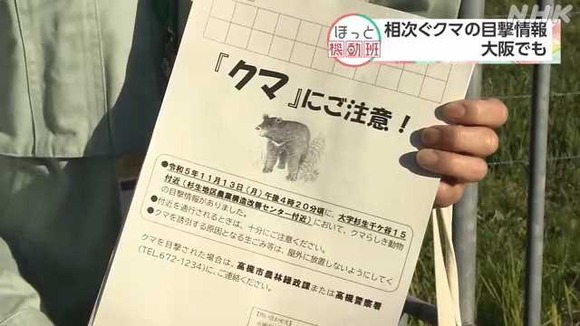 NHK
ほっと
機動班
相次ぐクマの目撃情報
大阪でも
『クマ』にご注意！
●令和5年11月13日（月）午後4時20分頃に、大字杉生千ケ谷15
付近（杉生地区農業構造改善センター付近）において、クマらしき動物
の目撃情報がありました。
●付近を通行されるときは、十分にご注意ください。
●クマを誘引する原因となる生ごみ等は、屋外に放置しないようにしてく
ださい。
クマを目撃された場合は、高槻市農林緑政課または高槻警察署
(TEL.672-1234)に、ご連絡ください。